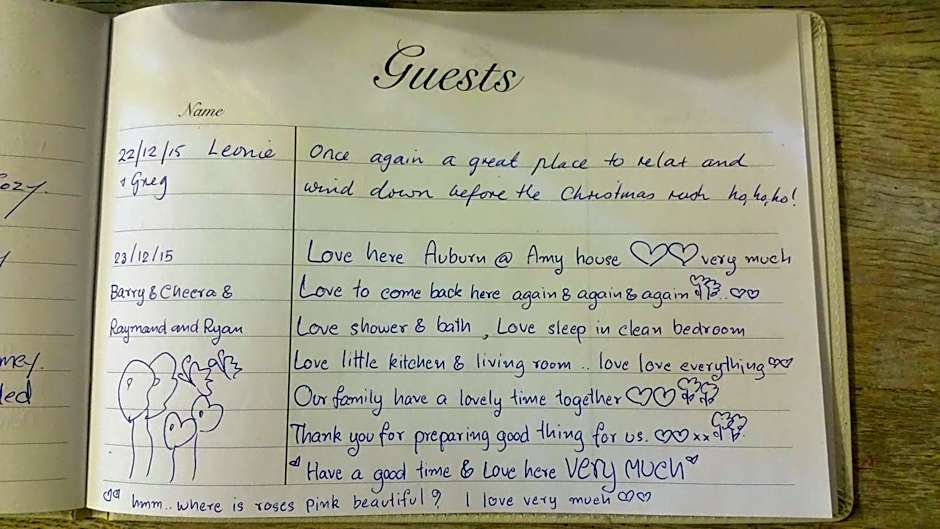 Guests
Name
22/12/15 Leonie
+ Greg
Once again a great place to relax and
wind down before the Christmas rush ho, ho, ho!
23/12/15
Barry & Cheera &
Raymand and Ryan
Love here Auburn @ Amy house ♡♡ very much
Love to come back here again & again & again .. ♡♡
Love shower & bath , Love sleep in clean bedroom
Love little kitchen & living room .. love love everything ♡♡
Our family have a lovely time together ♡♡
Thank you for preparing good thing for us. ♡♡ xx
Have a good time & Love here VERY MUCH ♡
♡♡ hmm.. where is roses pink beautiful? I love very much ♡♡
ozy.
y
mey.
led